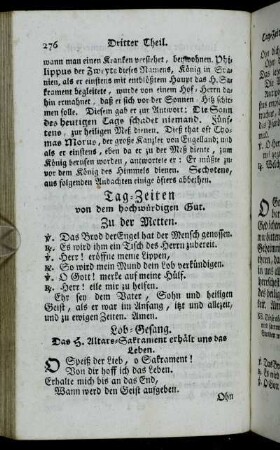 276 Dritter Theil.
wann man einen Kranken versiehet, beywohnen. Phi-
lippus der Zweyte dieses Namens, König in Spa-
nien, als er einstens mit entblößtem Haupt das H. Sa-
krament begleitete, wurde von einem Hof-Herrn da-
hin ermahnet, daß er sich vor der Sonnen Hitz schir-
men solle. Diesem gab er zur Antwort: Die Sonn
des heutigen Tags schadet niemand. Fünf-
tens, zur heiligen Meß dienen. Dieß that oft Tho-
mas Morus, der große Kanzler von Engelland; und
als er einstens, eben da er zu der Meß diente, zum
König berufen worden, antwortete er: Er müßte zu-
vor dem König des Himmels dienen. Sechstens,
aus folgenden Andachten einige öfters abbethen.
Tag-Zeiten
von dem hochwürdigen Gut.
Zu der Metten.
℣. Das Brod der Engel hat der Mensch genossen.
℟. Es wird ihm ein Tisch des Herrn zubereit.
℣. Herr! eröffne meine Lippen,
℟. So wird mein Mund dein Lob verkündigen.
℣. O Gott! merke auf meine Hülf.
℟. Herr! eile mir zu helfen.
Ehr sey dem Vater, Sohn und heiligen
Geist, als er war im Anfang, itzt und allezeit,
und zu ewigen Zeiten. Amen.
Lob-Gesang.
Das H. Altars-Sakrament erhält uns das
Leben.
O Speiß der Lieb, o Sakrament!
Von dir hoff ich das Leben.
Erhalte mich bis an das End,
Wann werd den Geist aufgeben.
Ohn